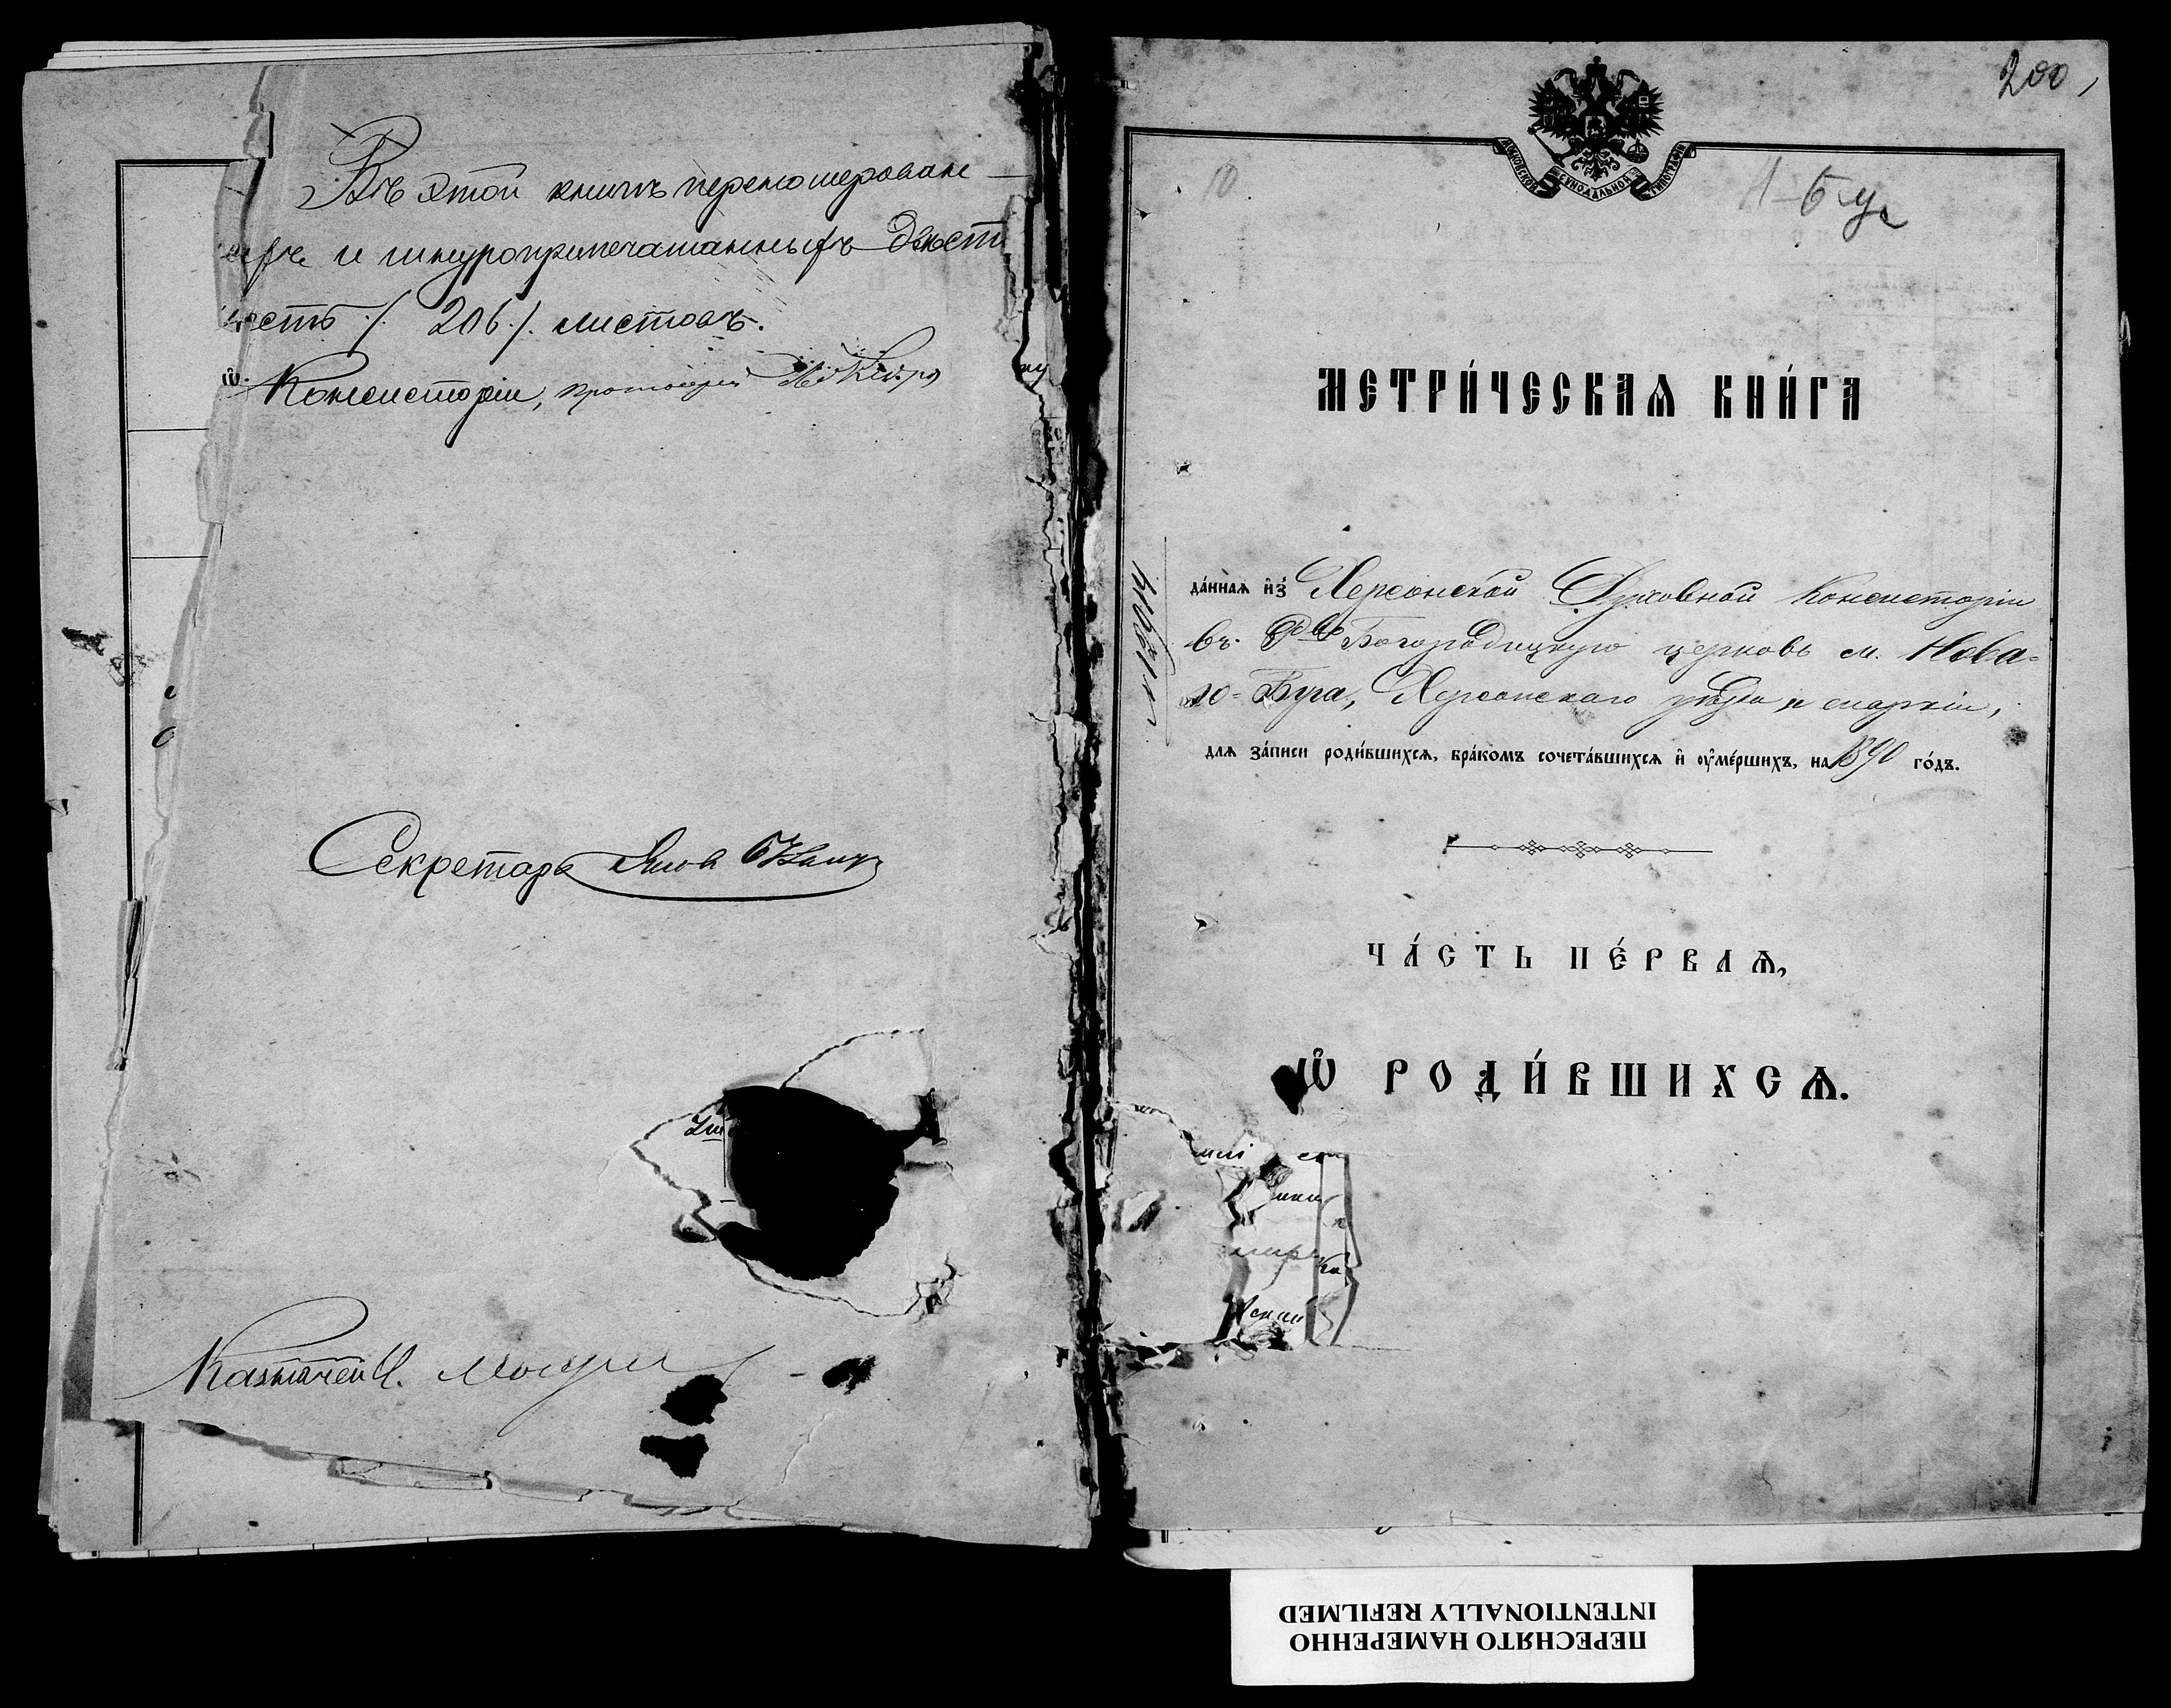 Въ этой книгѣ перенумерован
и шнуроприпечатанныхъ двѣст
шесть /. 206 /. листовъ.
Консисторіи, протоіерей
Секретарь
Казначей
200
МОСКОВСКОЙ СѴНОДАЛЬНОЙ ТИПОГРАФІИ
10
Н-Буг
МЕТРИ́ЧЕСКАѦ КНИ́ГА
да́ннаѧ и҆зъ Херсонской Духовной Консисторіи
въ Рдво Богородицкую церковь м. Нова-
го-Буга, Херсонскаго уѣзда и епархіи,
длѧ за́писи роди́вшихсѧ, бра́комъ сочета́вшихсѧ и҆ ᲂу҆ме́ршихъ, на 1890 го́дъ.
ЧА́СТЬ ПЕ́РВАѦ,
Ѡ҆ РОДИ́ВШИХСѦ.
ПЕРЕСНЯТО НАМЕРЕННО
INTENTIONALLY REFILMED